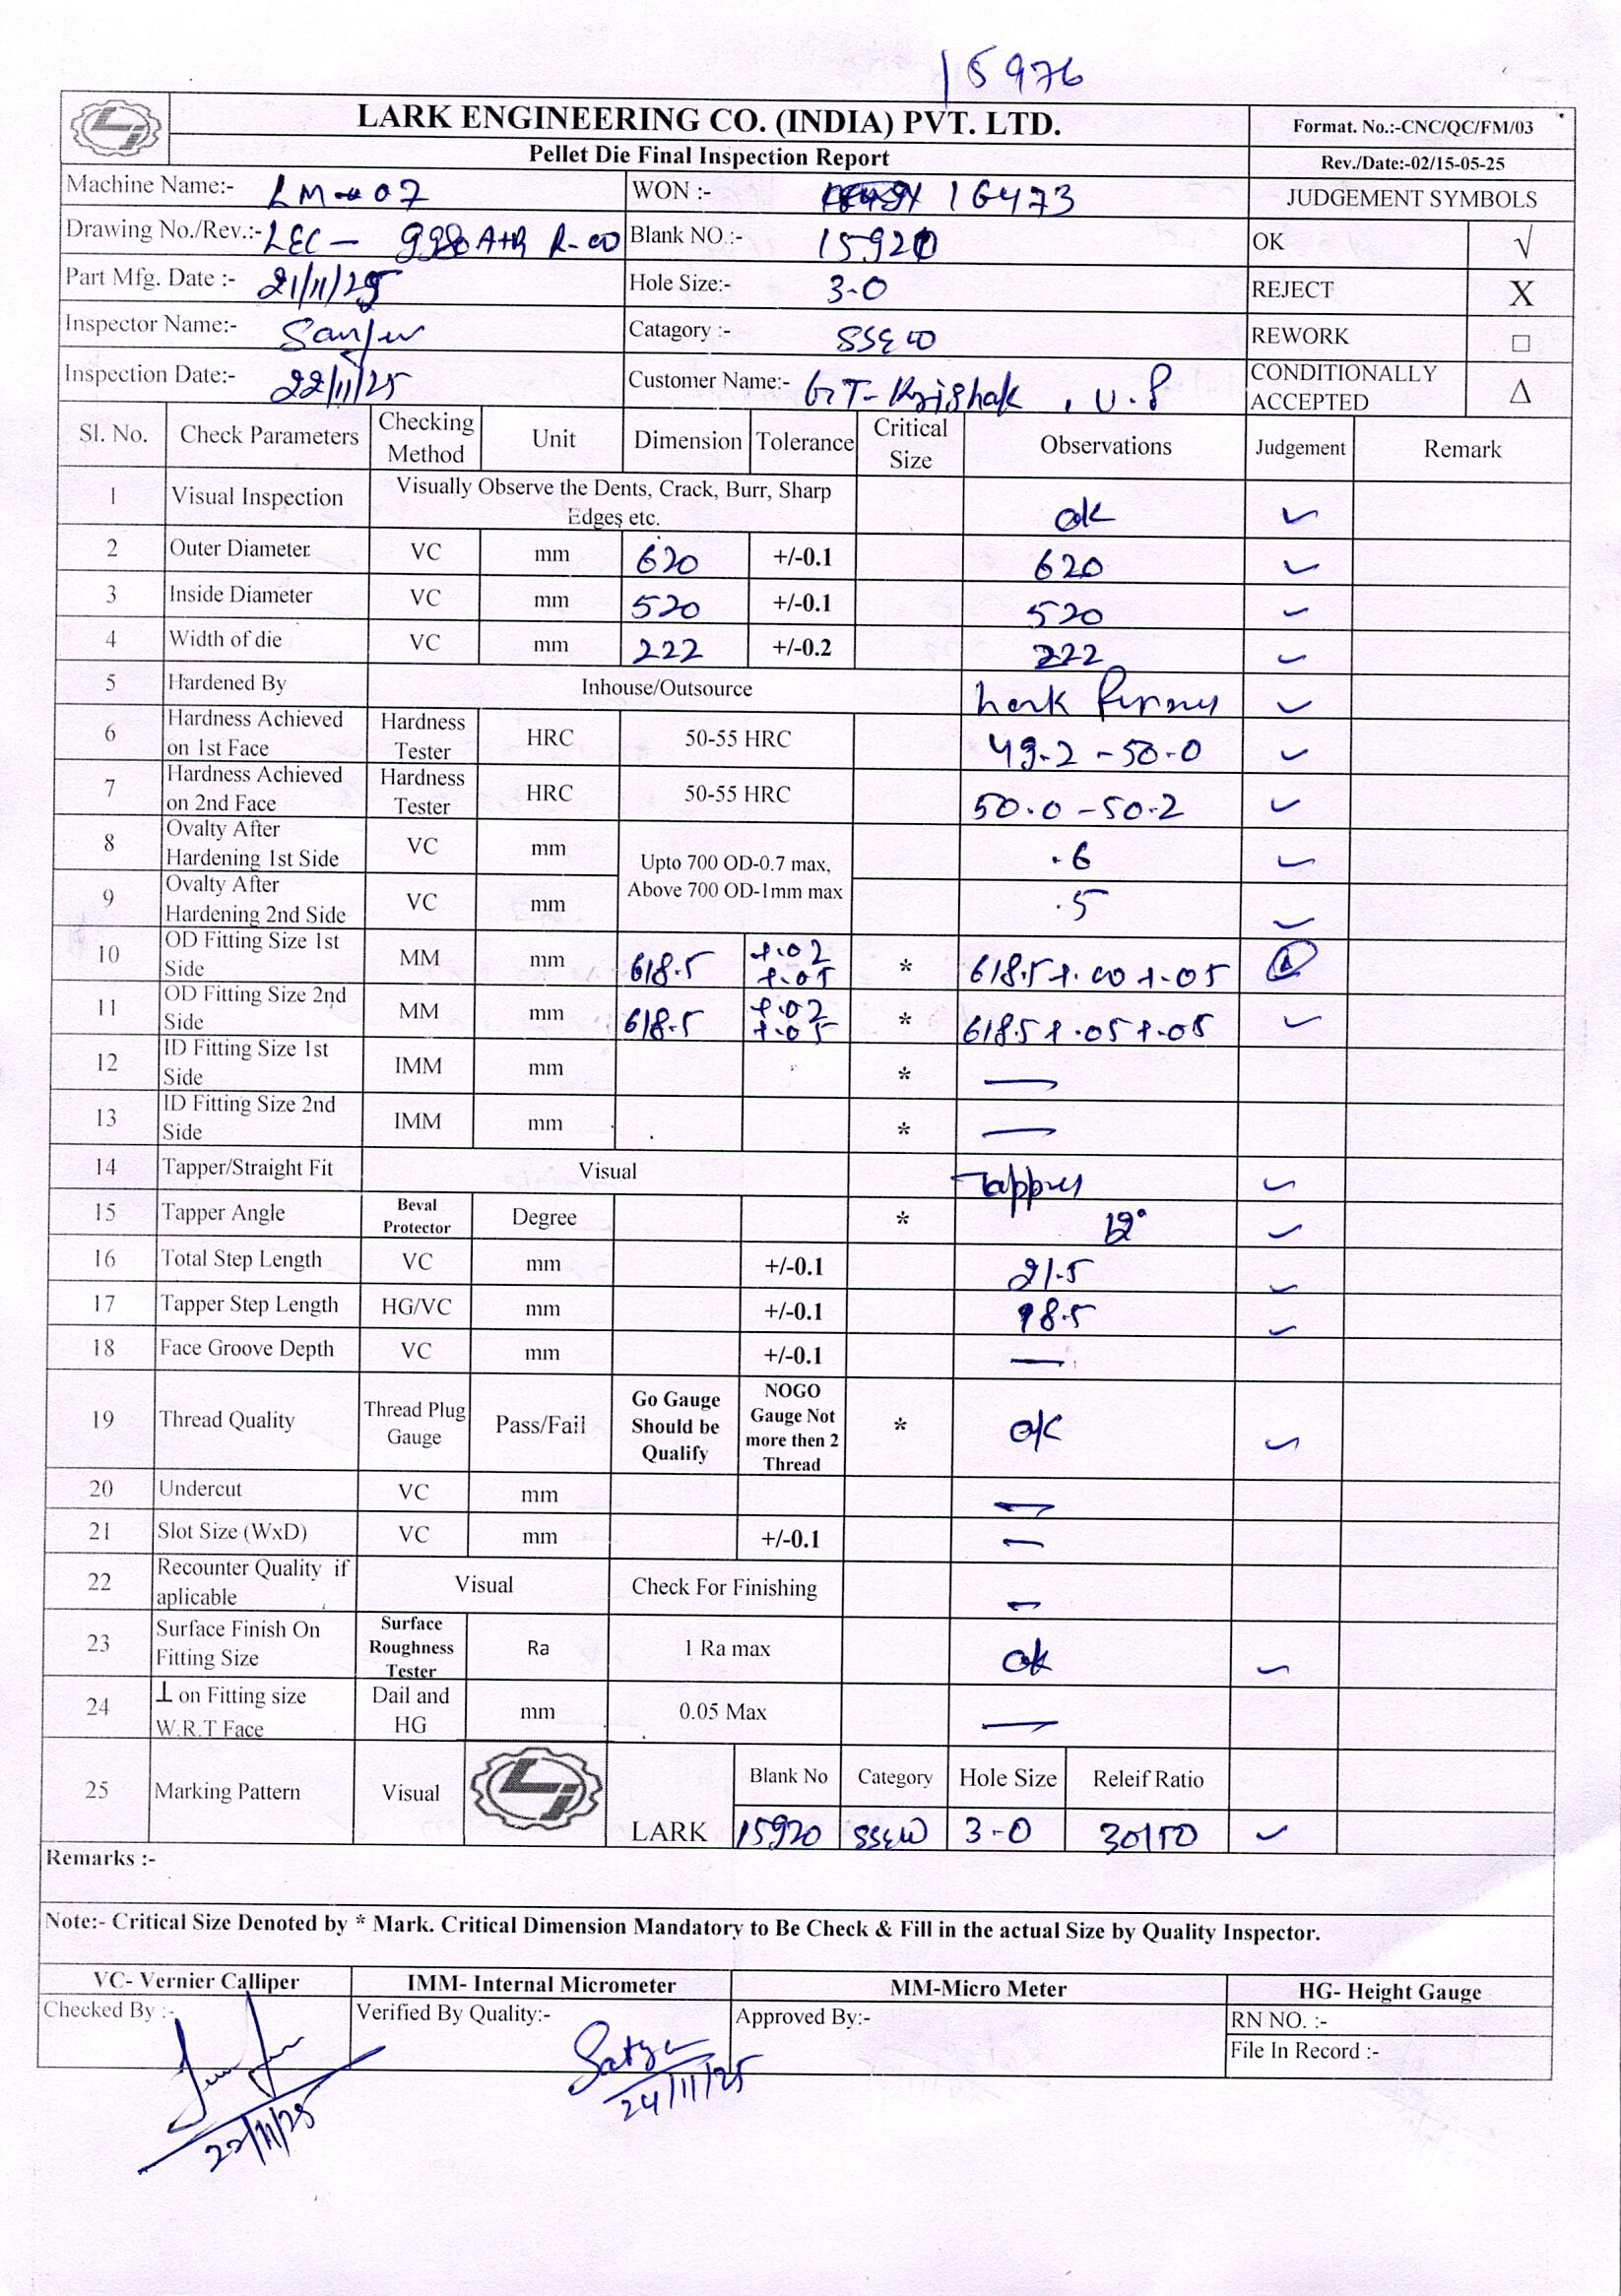 15976
LARK ENGINEERING CO. (INDIA) PVT. LTD.
Format. No.:-CNC/QC/FM/03
Pellet Die Final Inspection Report
Rev./Date:-02/15-05-25
Machine Name:- LM-07 WON :- 16473 JUDGEMENT SYMBOLS
Drawing No./Rev.:- LEC- A+B R-00 Blank NO.:- 15920 OK √
Part Mfg. Date :- 21/11/25 Hole Size:- 3-0 REJECT X
Inspector Name:- Sanjev Catagory :- SSEW REWORK □
Inspection Date:- 22/11/25 Customer Name:- GT-Krishak , U.P CONDITIONALLY ACCEPTED Δ
Sl. No. Check Parameters Checking Method Unit Dimension Tolerance Critical Size Observations Judgement Remark
1 Visual Inspection Visually Observe the Dents, Crack, Burr, Sharp Edges etc. ok ✓
2 Outer Diameter VC mm 620 +/-0.1 620 ✓
3 Inside Diameter VC mm 520 +/-0.1 520 ✓
4 Width of die VC mm 222 +/-0.2 222 ✓
5 Hardened By Inhouse/Outsource Lark ✓
6 Hardness Achieved on 1st Face Hardness Tester HRC 50-55 HRC 49.2 - 50.0 ✓
7 Hardness Achieved on 2nd Face Hardness Tester HRC 50-55 HRC 50.0 - 50.2 ✓
8 Ovalty After Hardening 1st Side VC mm Upto 700 OD-0.7 max, Above 700 OD-1mm max .6 ✓
9 Ovalty After Hardening 2nd Side VC mm .5 ✓
10 OD Fitting Size 1st Side MM mm 618.5 +.02 +.05 * 618.5 +.00 +.05
11 OD Fitting Size 2nd Side MM mm 618.5 +.02 +.05 * 618.5 +.05 +.05 ✓
12 ID Fitting Size 1st Side IMM mm * —
13 ID Fitting Size 2nd Side IMM mm * —
14 Tapper/Straight Fit Visual Tapper ✓
15 Tapper Angle Beval Protector Degree * ✓
16 Total Step Length VC mm +/-0.1 21.5 ✓
17 Tapper Step Length HG/VC mm +/-0.1 18.5 ✓
18 Face Groove Depth VC mm +/-0.1 —
19 Thread Quality Thread Plug Gauge Pass/Fail Go Gauge Should be Qualify NOGO Gauge Not more then 2 Thread * ok ✓
20 Undercut VC mm —
21 Slot Size (WxD) VC mm +/-0.1 —
22 Recounter Quality if aplicable Visual Check For Finishing —
23 Surface Finish On Fitting Size Surface Roughness Tester Ra 1 Ra max ok ✓
24 ⊥ on Fitting size W.R.T Face Dail and HG mm 0.05 Max —
25 Marking Pattern Visual LARK Blank No Category Hole Size Releif Ratio
15920 SSEW 3-0 30/50 ✓
Remarks :-
Note:- Critical Size Denoted by * Mark. Critical Dimension Mandatory to Be Check & Fill in the actual Size by Quality Inspector.
VC- Vernier Calliper IMM- Internal Micrometer MM-Micro Meter HG- Height Gauge
Checked By :- Verified By Quality:- Approved By:- RN NO. :-
File In Record :-
Satya
22/11/25 24/11/25